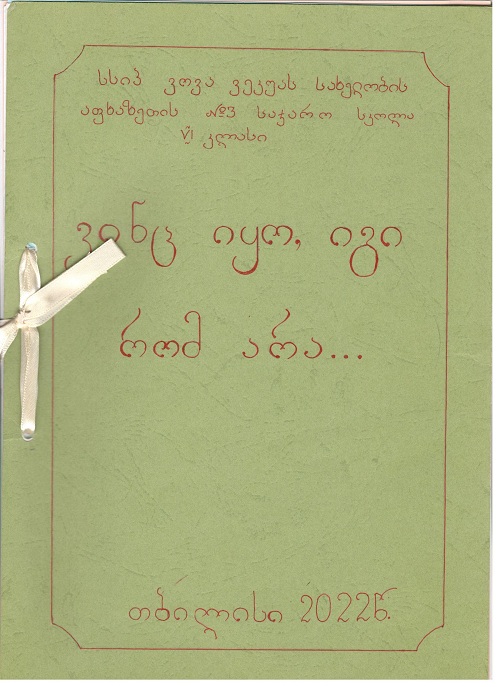 სსიპ ვოვა ვეკუას სახელობის
აფხაზეთის №3 საჯარო სკოლა
VI კლასი
ვინც იყო, იგი
რომ არა...
თბილისი 2022წ.